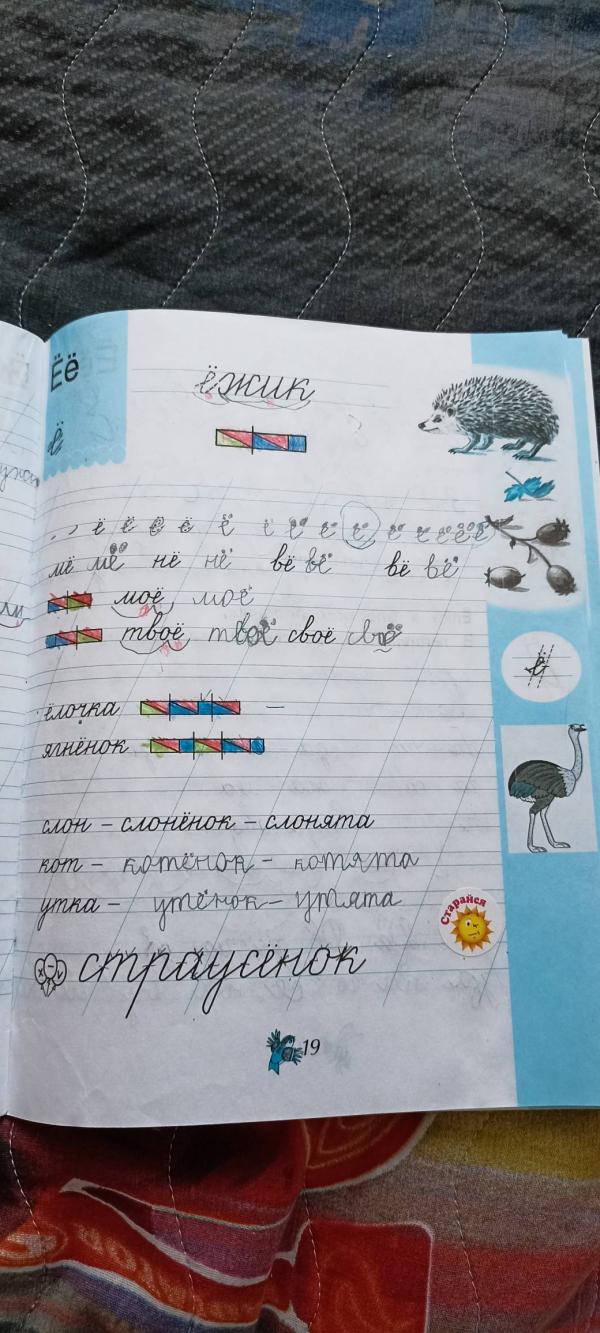 Ёё
ё
ёжик
ё ё ё ё ё ё ё ё ё ё ё ё ё ё
мё мё нё нё вё вё вё вё
моё моё
твоё твоё своё своё
ёлочка
ягнёнок
слон – слонёнок – слонята
кот – котёнок – котята
утка – утёнок – утята
Старайся
страусёнок
19
ё